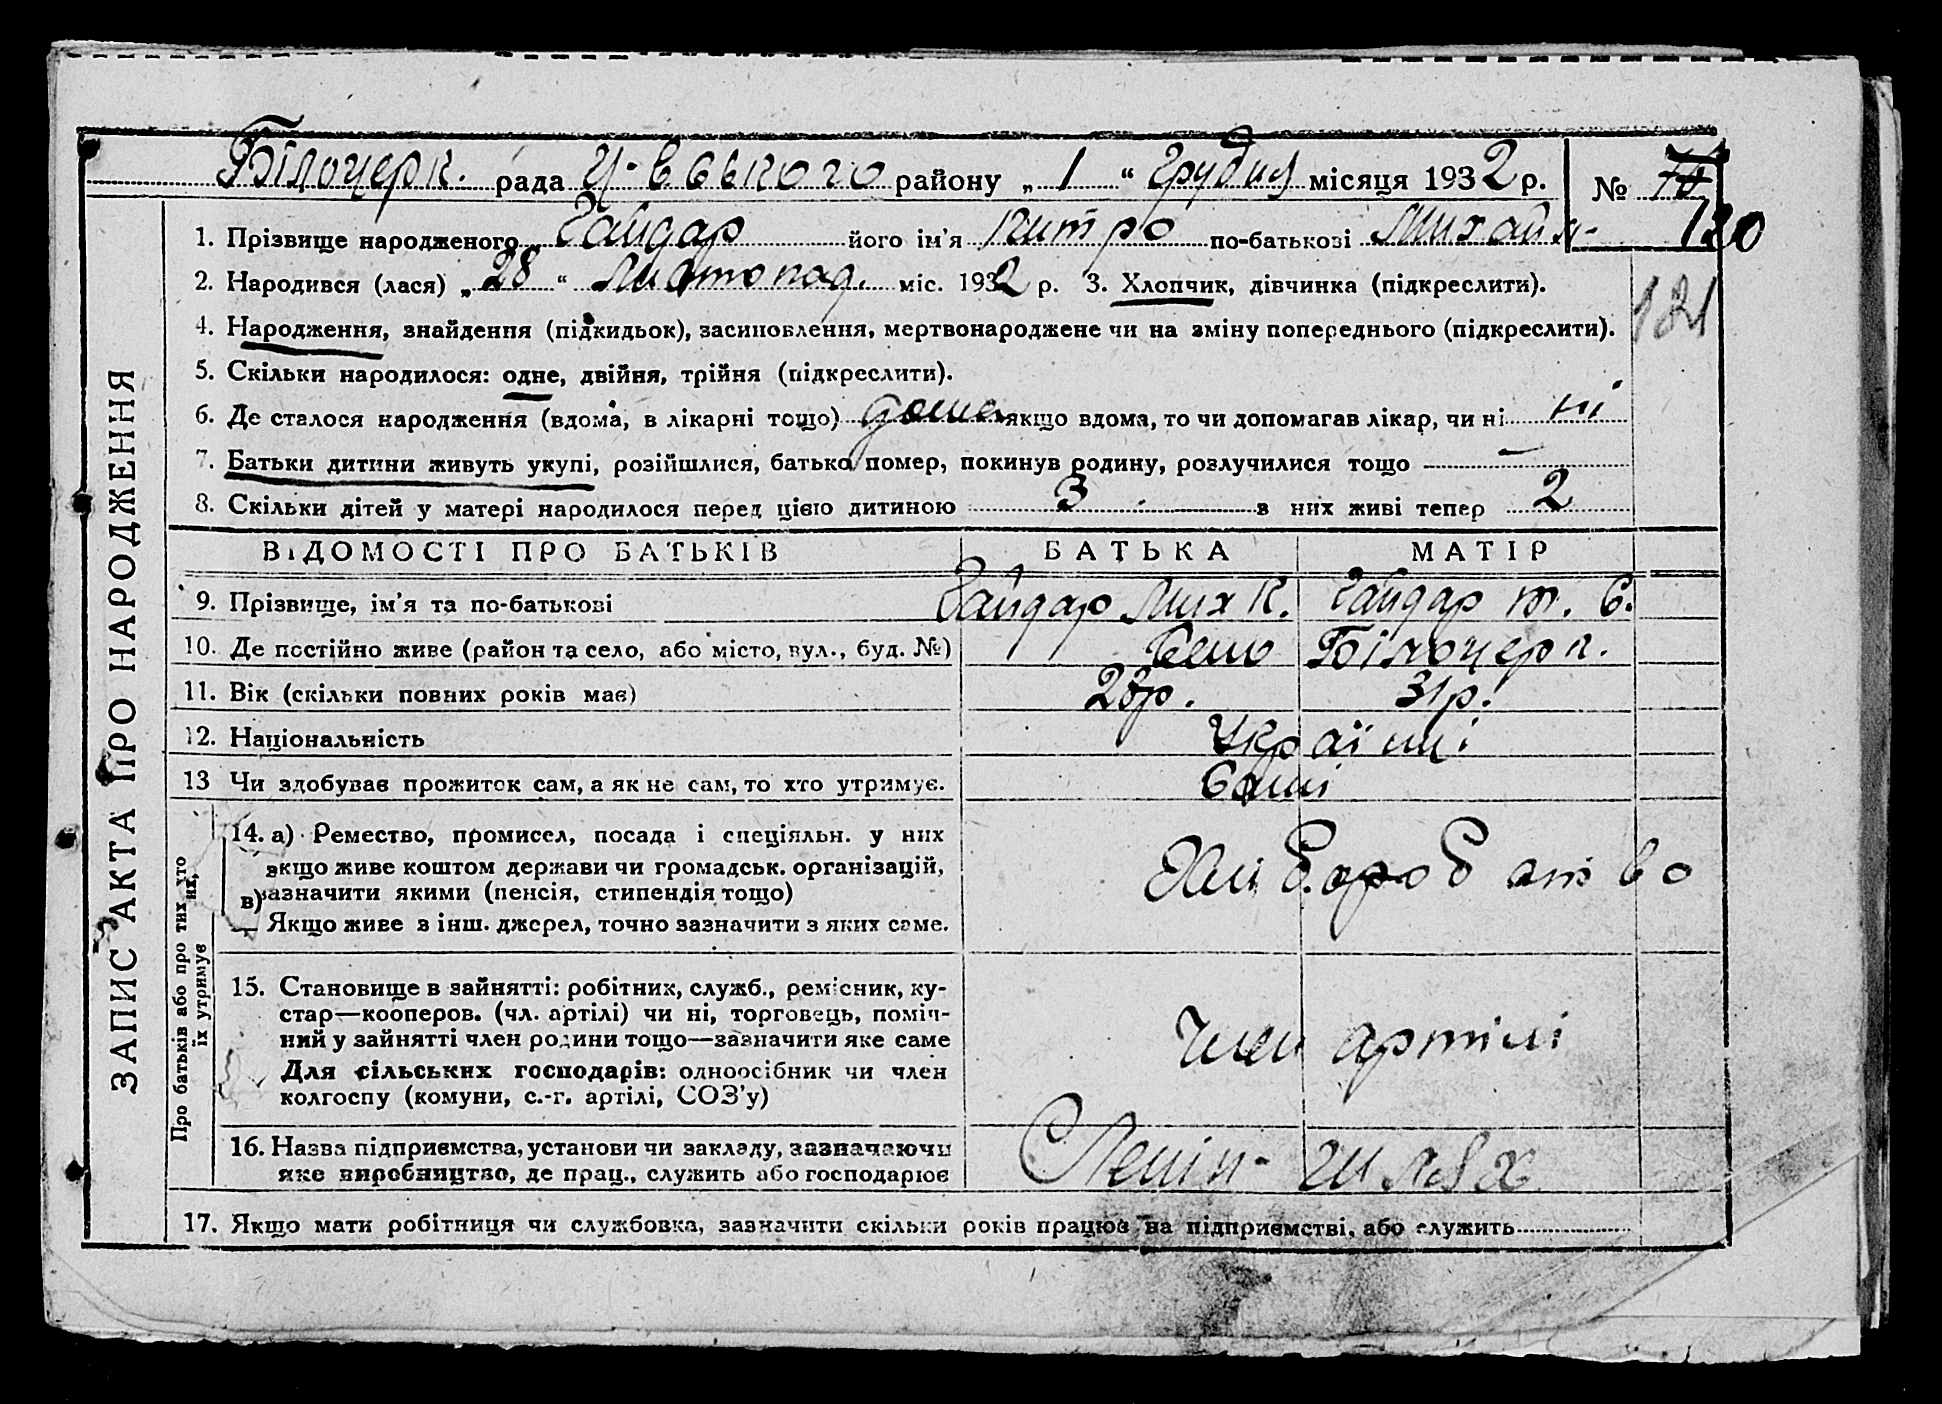 Білоцерк. рада района „ 1 “ Грудня місяця 1932 р. № 120
1. Прізвище народженого Гайдар його ім'я по-батькові Михайл-
2. Народився (лася) „ 28 “ Листопад. міс. 1932 р. 3. Хлопчик, дівчинка (підкреслити).
121
4. Народження, знайдення (підкидьок), засиновлення, мертвонароджене чи на зміну попереднього (підкреслити).
5. Скільки народилося: одне, двійня, трійня (підкреслити).
6. Де сталося народження (вдома, в лікарні тощо) дома якщо вдома, то чи допомагав лікар, чи ні ні
7. Батьки дитини живуть укупі, розійшлися, батько помер, покинув родину, розлучилися тощо —
8. Скільки дітей у матері народилося перед цією дитиною 3 в них живі тепер 2
ЗАПИС АКТА ПРО НАРОДЖЕННЯ
ВІДОМОСТІ ПРО БАТЬКІВ БАТЬКА МАТІР
9. Прізвище, ім'я та по-батькові Гайдар Мих К. Гайдар т. Є.
10. Де постійно живе (район та село, або місто, вул., буд. №) Село Білоцерк.
11. Вік (скільки повних років має) р. 31 р.
12. Національність Україньці
13 Чи здобував прожиток сам, а як не сам, то хто утримує. Самі
Про батьків або про тих, хто їх утримує
14. а) Ремество, промисел, посада і спеціяльн. у них
якщо живе коштом держави чи громадськ. організацій,
в) зазначити якими (пенсія, стипендія тощо)
Якщо живе з інш. джерел, точно зазначити з яких саме.
Хліборобство
15. Становище в зайнятті: робітник, служб., ремісник, ку-
стар—кооперов. (чл. артілі) чи ні, торговець, поміч-
ний у зайнятті член родини тощо—зазначити яке саме
Для сільських господарів: одноосібник чи член
колгоспу (комуни, с.-г. артілі, СОЗ'у)
член артілі
16. Назва підприємства, установи чи закладу, зазначаючи
яке виробництво, де прац., служить або господарює
Ленін- шлях
17. Якщо мати робітниця чи службовка, зазначити скільки років працює на підприємстві, або служить